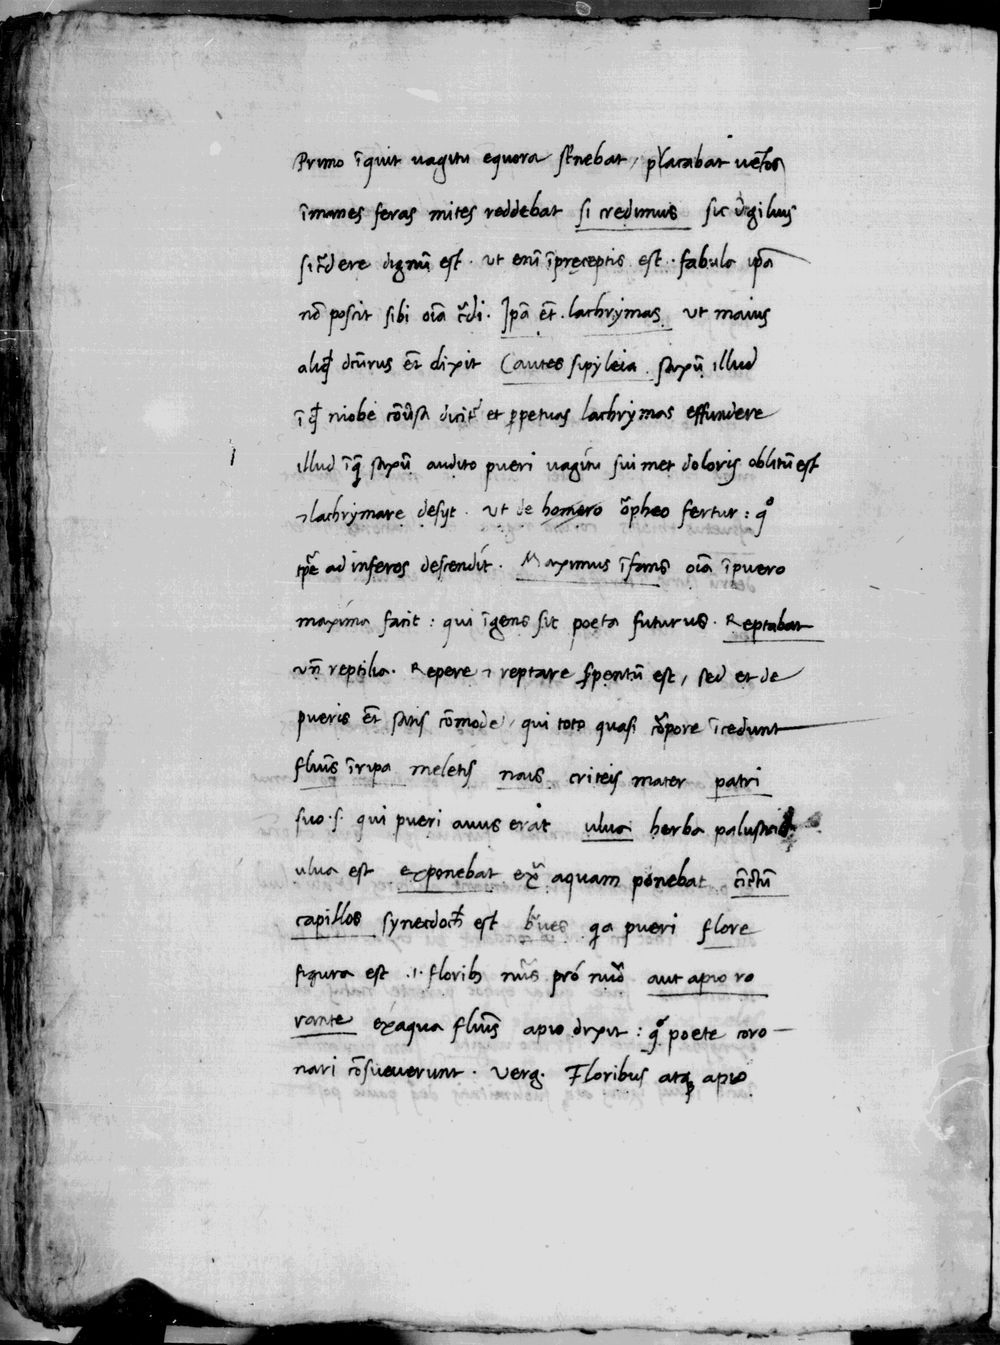 Primo īquit vagitu equora st̄nebat, placabat uētos
īmanes feras mites reddebat si credimus sic v̓gilius
si c̄dere dignū est. ut enī īpręceptis est. fabula ip̄a
nō poscit sibi oīa c̄di. Ip̄a ēt. lachrymas ut maius
aliq̄d dcūrus ēt dixit Cautes sipyleia. saxū illud
ī q̄d niobe cōu̓sa dicit̄ et ꝑpetuas lachrymas effundere
illud īq̄ saxū audito pueri vagitu sui met doloris oblitū est
⁊ lachrymare desijt. ut de homero orpheo fertur: qͦ
tp̄e ad inferos descendit. Maximus īfans oīa īpuero
maxima facit: qui īgens sit poeta futurus. Reptabat
vn̄ reptilia. Repere ⁊ reptare s̓pentū est, sed et de
pueris ēt satis cōmode, qui toto quasi corpore īcedunt
fluīs īripa meletis nais criteis mater patri
suo .s. qui pueri auus erat ulua herba palustris
ulua est exponebat ex̄ aquam ponebat cīctū
capillos synecdoch̄ est b̄ues qa pueri flore
figura est .i. florib; nūs pro nūo aut apio ro
rante exaqua fluīs apio dixit: qͦ poete coro—
nari cōsueuerunt. Verg. Floribus atq; apio